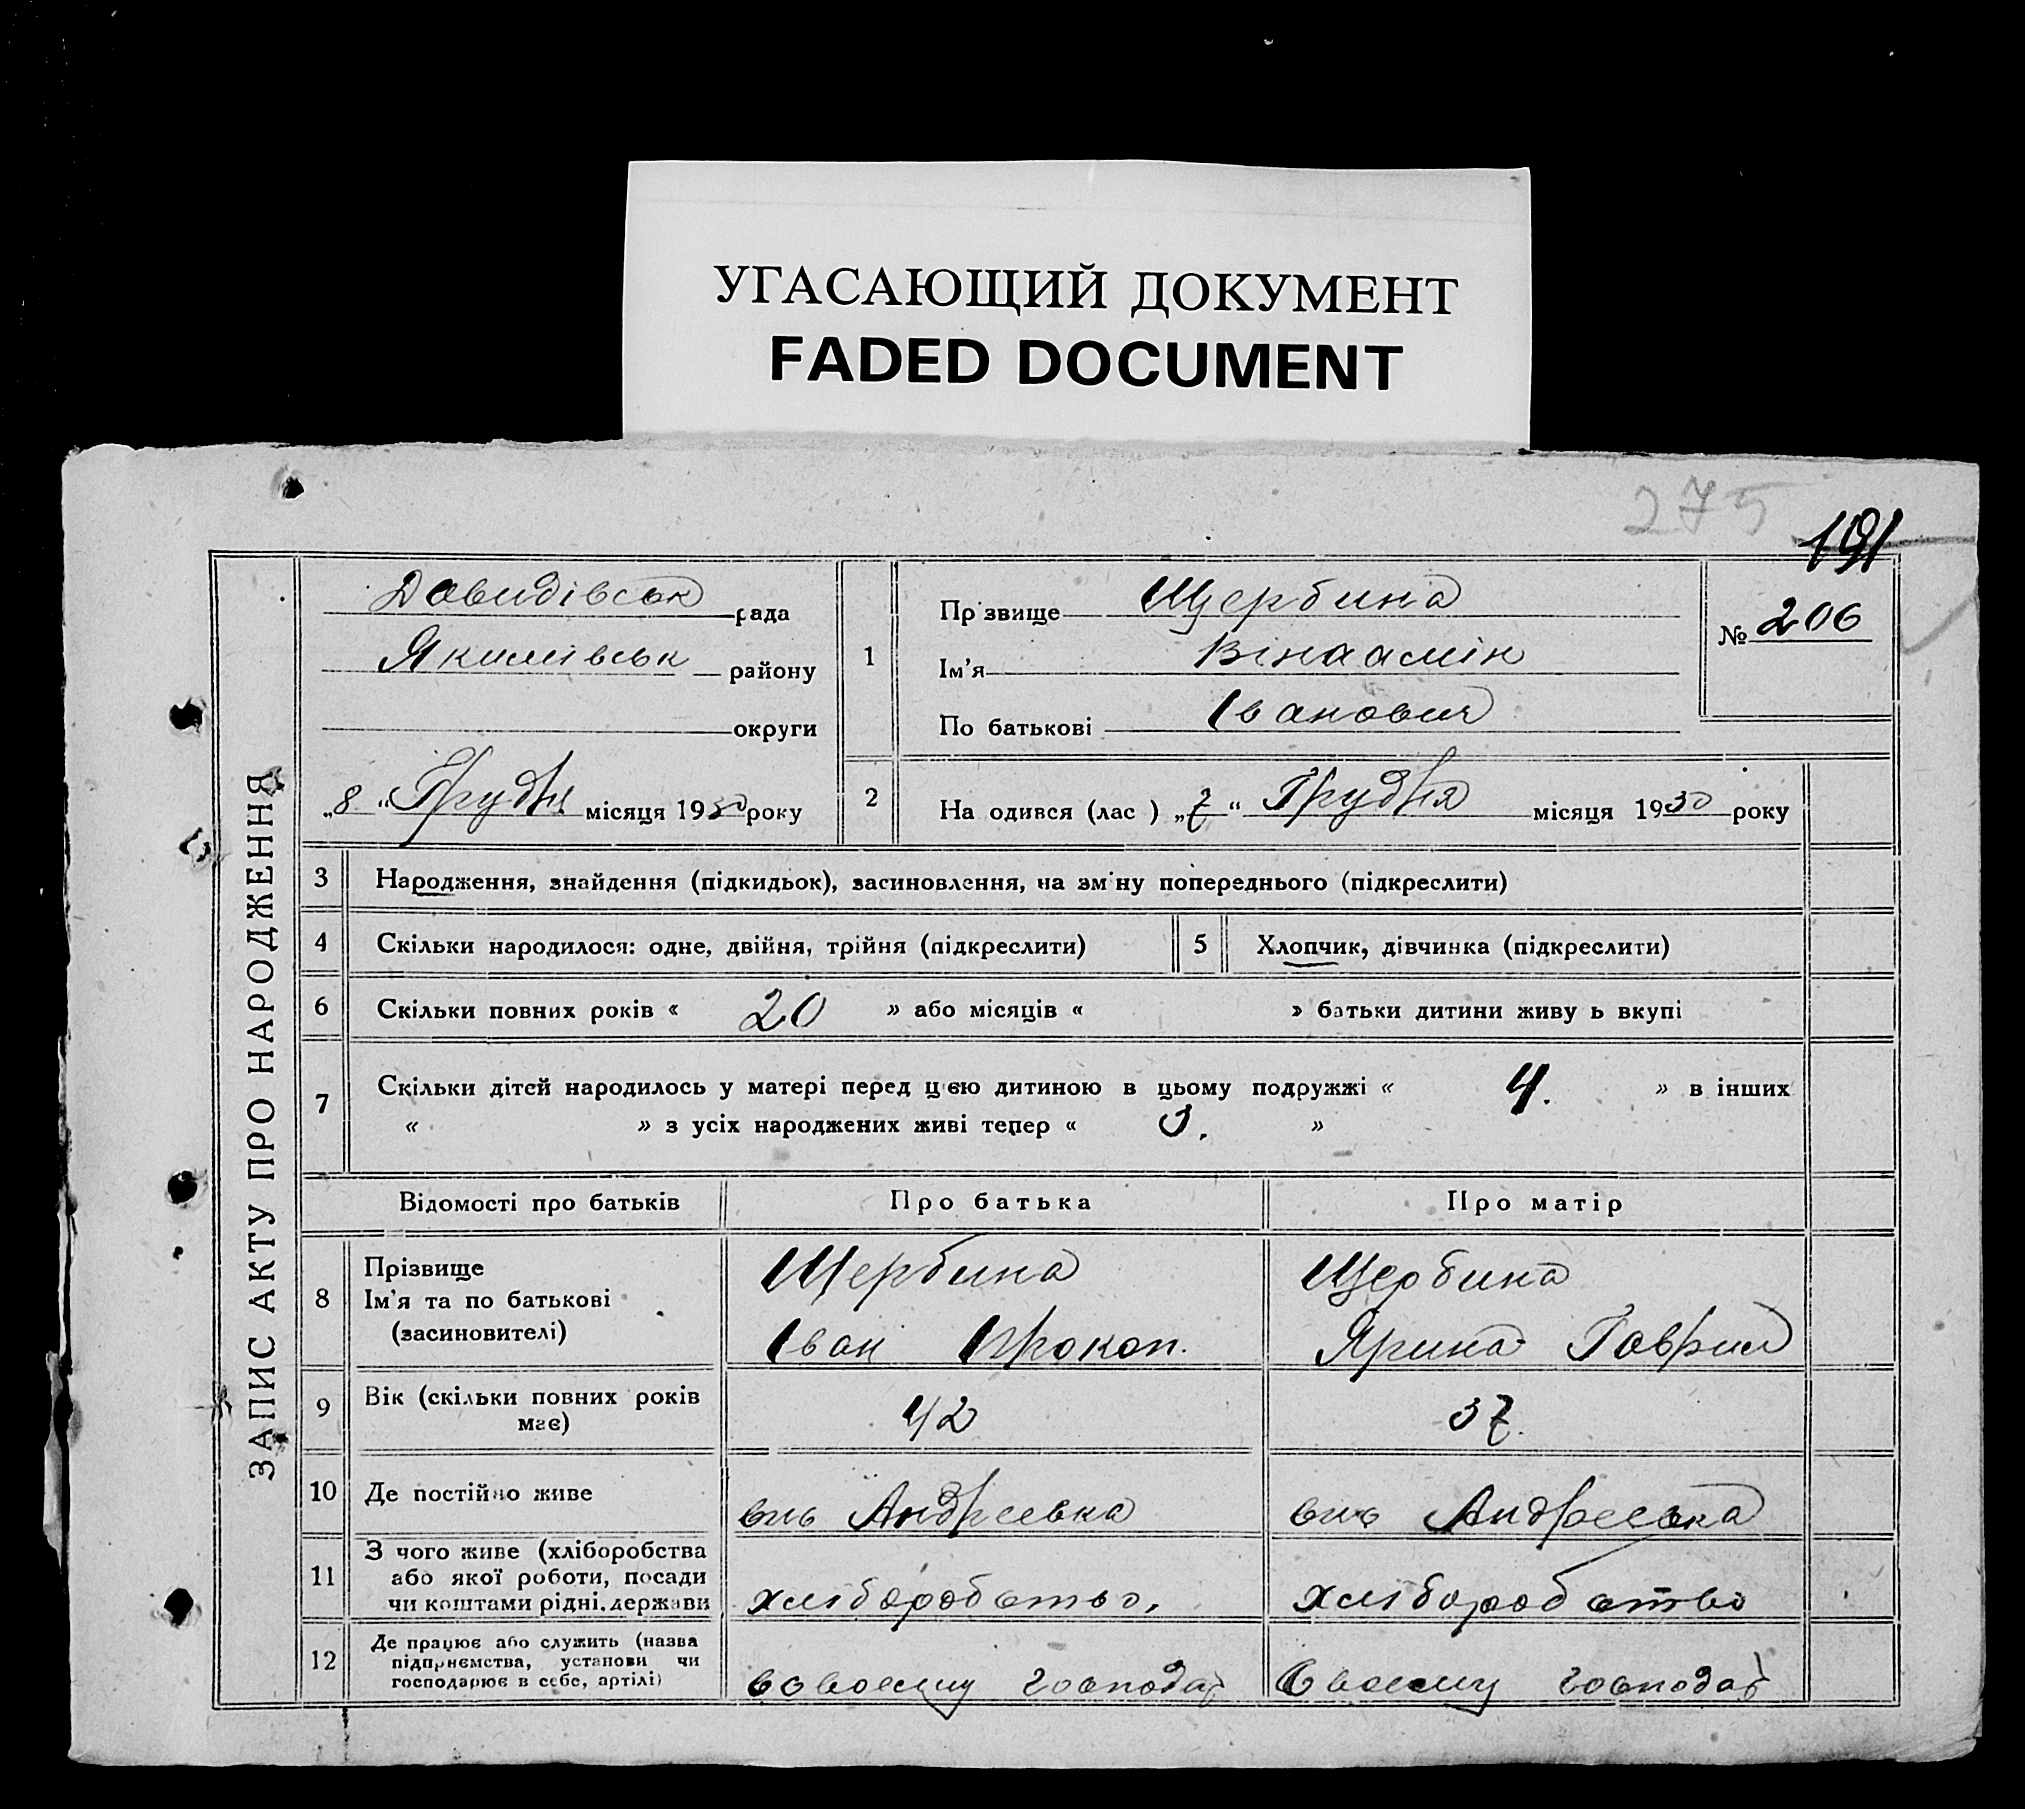 УГАСАЮЩИЙ ДОКУМЕНТ
FADED DOCUMENT
275
191
ЗАПИС АКТУ ПРО НАРОДЖЕННЯ
Давидівськ рада
Якимівськ району
округи
„8“ Грудня місяця 1930 року
1
Пр звище Щербина
Ім'я Вінаамін
По батькові Іванович
№ 206
2
На одився (лас ) „7“ Грудня місяця 1930 року
3 Народження, знайдення (підкидьок), засиновлення, на зм ну попереднього (підкреслити)
4 Скільки народилося: одне, двійня, трійня (підкреслити) 5 Хлопчик, дівчинка (підкреслити)
6 Скільки повних років « 20 » або місяців « » батьки дитини живу ь вкупі
7 Скільки дітей народилось у матері перед цією дитиною в цьому подружжі « 4. » в інших
« » з усіх народжених живі тепер « 3. »
Відомості про батьків Про батька Про матір
8 Прізвище
Ім'я та по батькові
(засиновителі)
Щербина
Іван Прокоп.
Щербина
Ярина Гаврил
9 Вік (скільки повних років
має)
42
37.
10 Де постійно живе
Андреевка
Андреевка
11 З чого живе (хліборобства
або якої роботи, посади
чи коштами рідні, держави
хліборобство,
хліборобство
12 Де працює або служить (назва
підприємства, установи чи
господарює в себе, артілі)
всвоему господар
Своему господар